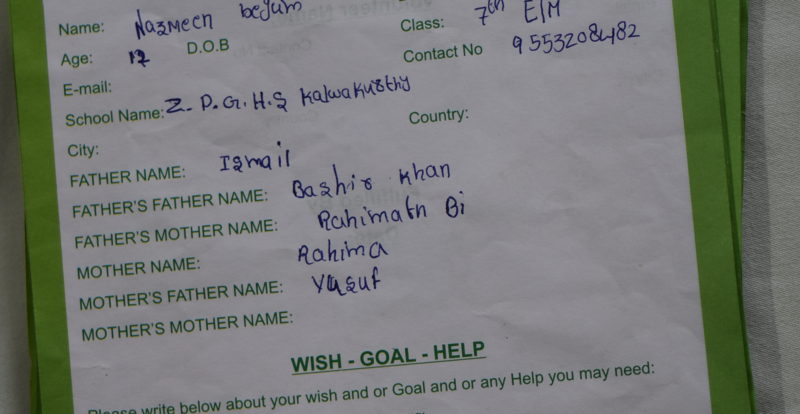 Name: Nazmeen begum Class: 7th E/M
Age: 12 D.O.B Contact No 9553208482
E-mail:
School Name: Z. P. G. H. S Kalwakurthy Country:
City:
FATHER NAME: Ismail
FATHER'S FATHER NAME: Bashir Khan
FATHER'S MOTHER NAME: Rahimath Bi
MOTHER NAME: Rahima
MOTHER'S FATHER NAME: Yasuf
MOTHER'S MOTHER NAME:
WISH - GOAL - HELP
Please write below about your wish and or Goal and or any Help you may need: